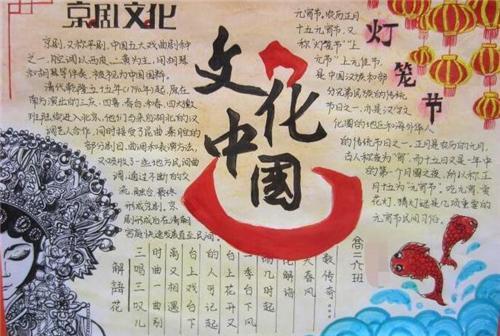 京剧文化
京剧,又称平剧,中国五大戏曲剧种
之一,腔调以西皮、二黄为主,用胡琴
和锣鼓等伴奏,被视为中国国粹。
清代乾隆五十五年(1790年)起,原在
南方演出的三庆、四喜、春台、和春,四大徽
班陆续进入北京,他们与来自湖北的汉
调艺人合作,同时接受了昆曲、秦腔的
部分剧目、曲调和表演方法,
又吸收了一些地方民间曲
调,通过不断的交
流、融合,最终
形成京剧。京
剧形成后在清朝
宫廷快速发展直至民间。
文化
中国
灯笼节
元宵节,农历正月
十五元宵节,又
称"灯笼节" "上
元节"上元佳节,
是中国汉族和部
分兄弟民族的传统
节日之一,亦是汉字文
化圈的地区和海外华人
的传统节日之一。正月是农历的元月,
古人称夜为"宵"而十五日又是一年中
的第一个月圆之夜,所以称正
月十五为"元宵节"。吃元宵、赏
花灯、猜灯谜是几项重要的
元宵节民间习俗。
解語花
三唱三叹儿
时曲一曲剧
离又相遇
台上戏台下
的人可记起
台上花开又
一季台下
雨几时起
化解语
大春风
数传奇
高二六班